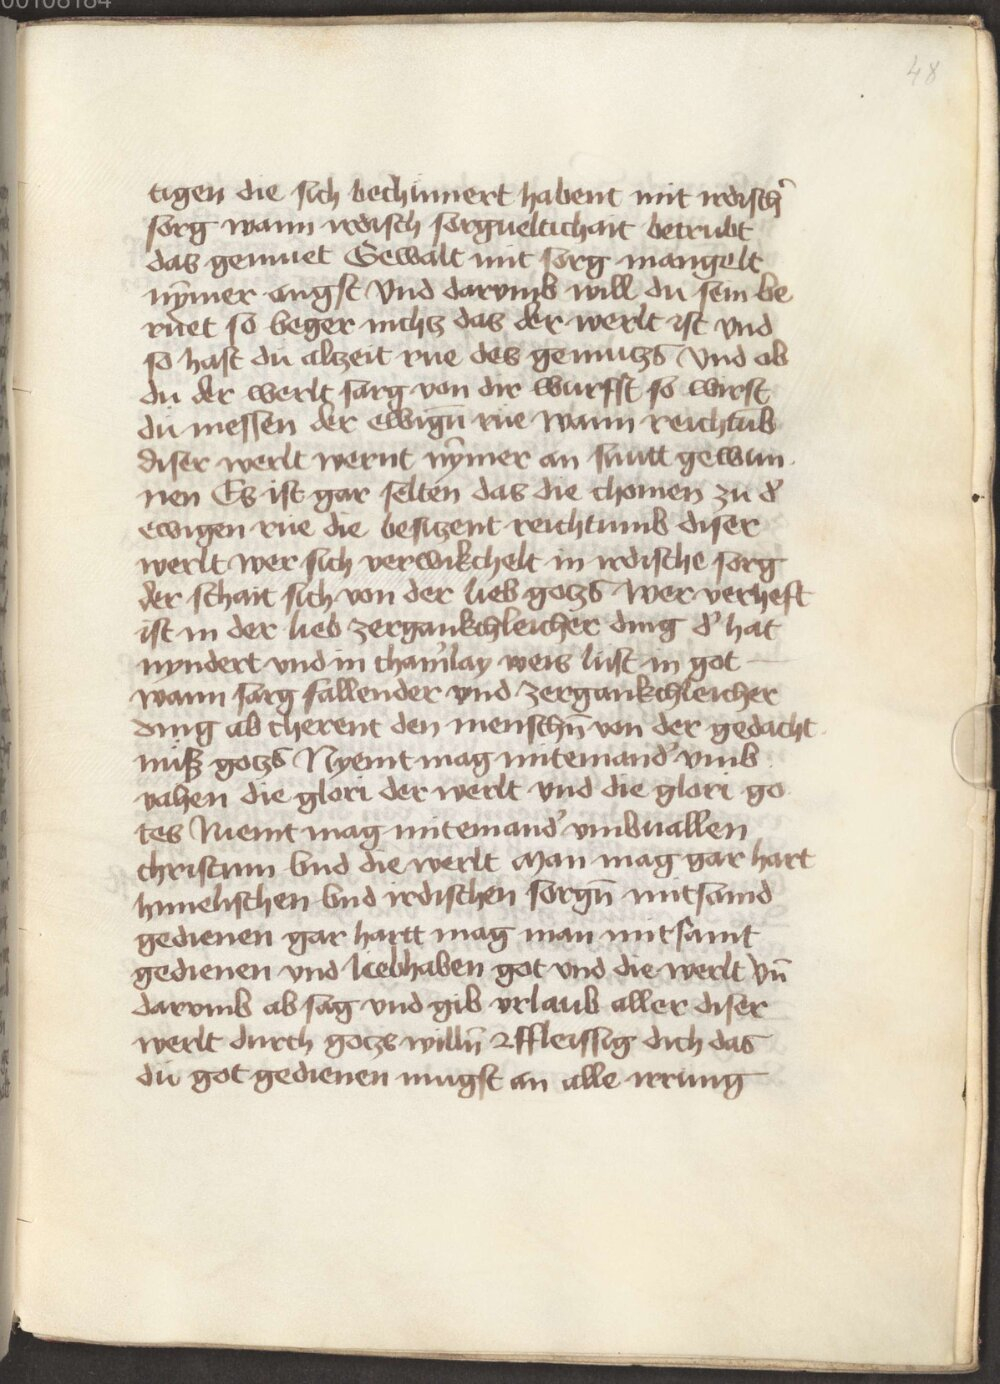 00108184
48
tigen die sich bechümert habent mit irdisch̄
sorg wann irdisch sorgueltichait betrubt
das gemuet Gewalt mit sorg mangelt
nȳmer angst Vnd darvmb will du sein be
ruet so beger nichtz das der werlt ist vnd
so hast du alzeit rue des gemutzs Vnd ob
du der werlt sarg von dir wurfft so wirst
du niessen der ewign̄ rue wann reichtūb
diser werlt wernt nȳmer an sunt gewun
nen Es ist gar selten das die chomen zu d'
ewigen rue die besitzent reichtumb diser
werlt wer sich verwikchelt in irdische sorg
der schait sich von der lieb gotzs Wer verheft
ist in der lieb zergankchleicher ding d' hat
nyndert vnd in chain'lay weis lust in got
wann sarg fallender vnd zergankchleicher
ding ab cherent den menschn̄ von der gedacht
nüß gotzs Nyemt mag miteinand' vmb
vahen die glori der werlt vnd die glori go
tes Niemt mag miteinand' vmbuallen
christum Vnd die werlt Man mag gar hart
himelischen Vnd irdischen sorgn̄ mitsamd
gedienen gar hartt mag man mitsamt
gedienen vnd liebhaben got vnd die werlt Vn̄
darvmb ab sag vnd gib vrlaub aller diser
werlt durch gotzs willn̄ ffleissig dich das
du got gedienen mugst an alle irrung